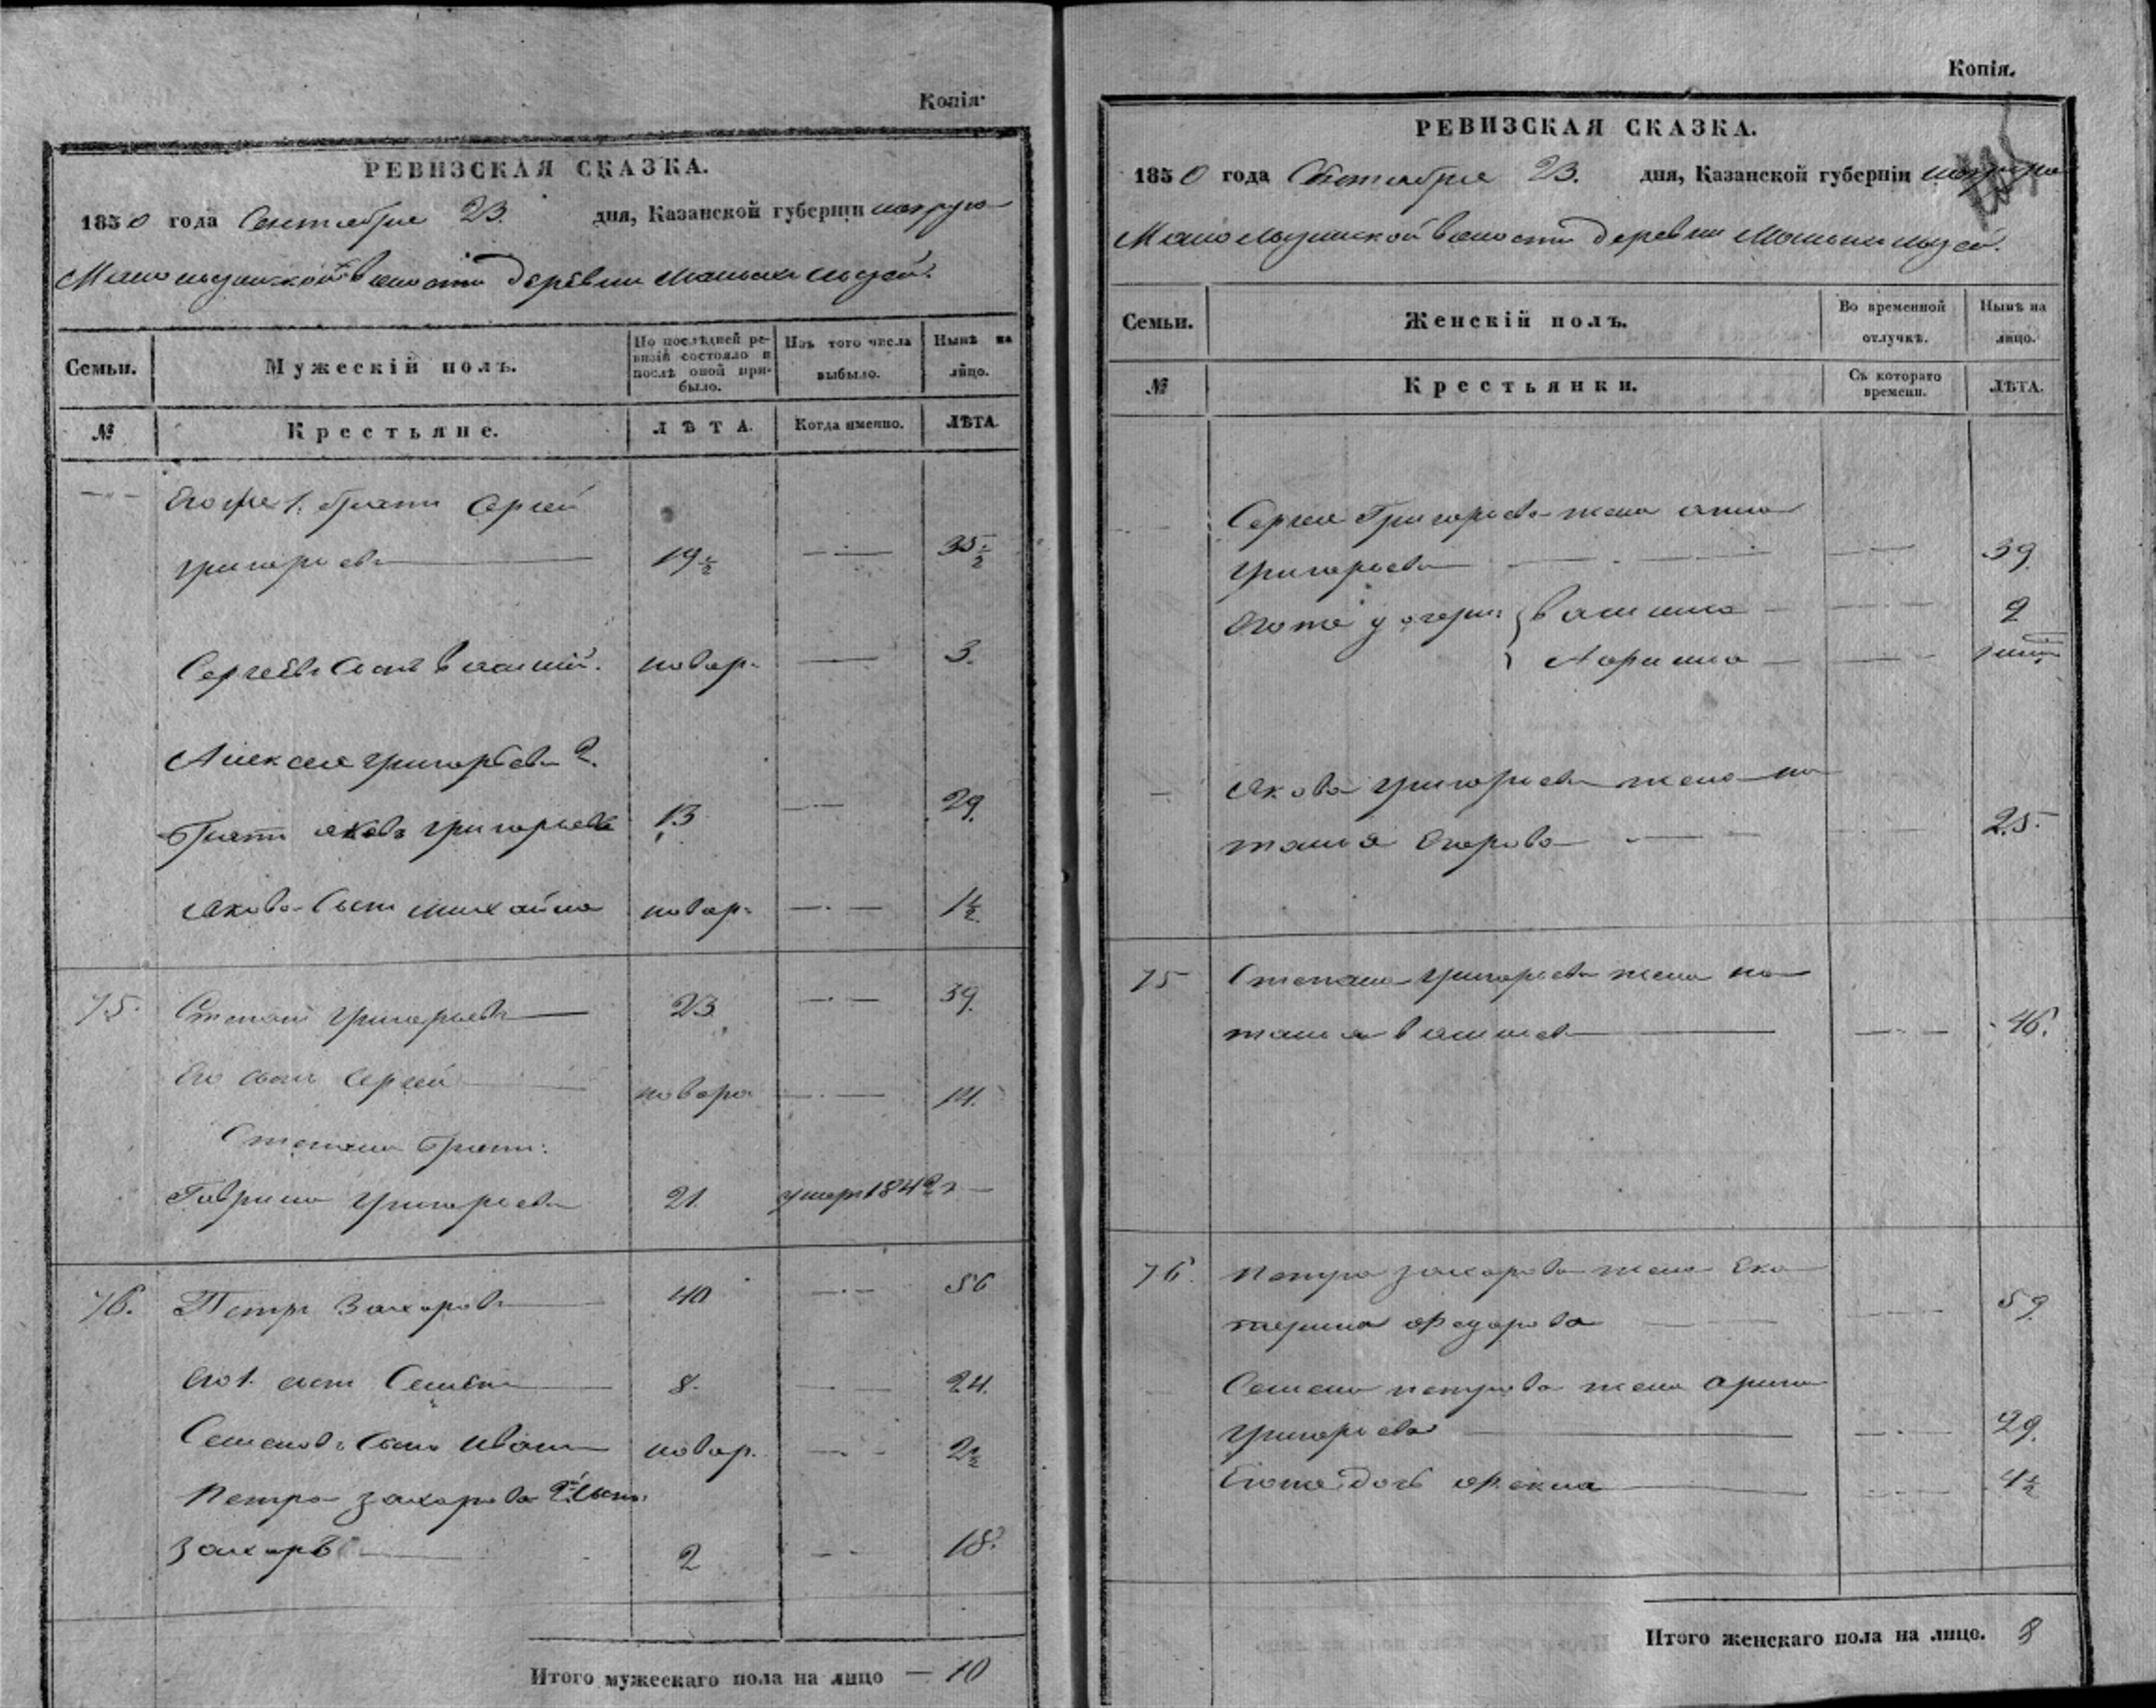 Копія.
РЕВИЗСКАЯ СКАЗКА.
1850 года Сентебре 23. дня, Казанской губерніи
волости деревни
Семьи. Мужескій полъ. По послѣдней ревизіи состояло и послѣ оной прибыло. Изъ того числа выбыло. Нынѣ на лицо.
№ Крестьяне. ЛѢТА. Когда именно. ЛѢТА.
Его же 1. братъ Сергей
григорьевъ 19½ 35½
Сергеевъ сынъ Василий. новор. 3.
Алексея григорьева 2.
братъ яковъ григорьевъ 13 29.
якова сынъ михайла новор. 1½
75. Степан григорьевъ 23 39.
Его сынъ Сергей новоро 14.
Степана братъ:
Гаврила григорьевъ 21. умеръ 1842 г
76. Петръ Захаровъ 40 56
его 1. сынъ Семенъ 8. 24.
Семеновъ сынъ Иванъ новор. 2½
Петра захарова 2. сынъ
захаръ 2 18.
Итого мужескаго пола на лицо — 10
Копія.
РЕВИЗСКАЯ СКАЗКА.
1850 года Сентебре 23. дня, Казанской губерніи
волости деревни
Семьи. Женскій полъ. Во временной отлучкѣ. Нынѣ на лицо.
№ Крестьянки. Съ котораго времени. ЛѢТА.
Сергея Григорьева жена анна
григорьева 39.
Его же дочери: Василиса 9
Дарина
якова григорьева жена на
талья Егорова 25.
75 Степана григорьева жена на
талья васильева 46.
76. петра захарова жена Ека
терина федорова 59.
Семена петрова жена арина
григорьева 29.
Его же дочь фекла 4½
Итого женскаго пола на лицо. 8